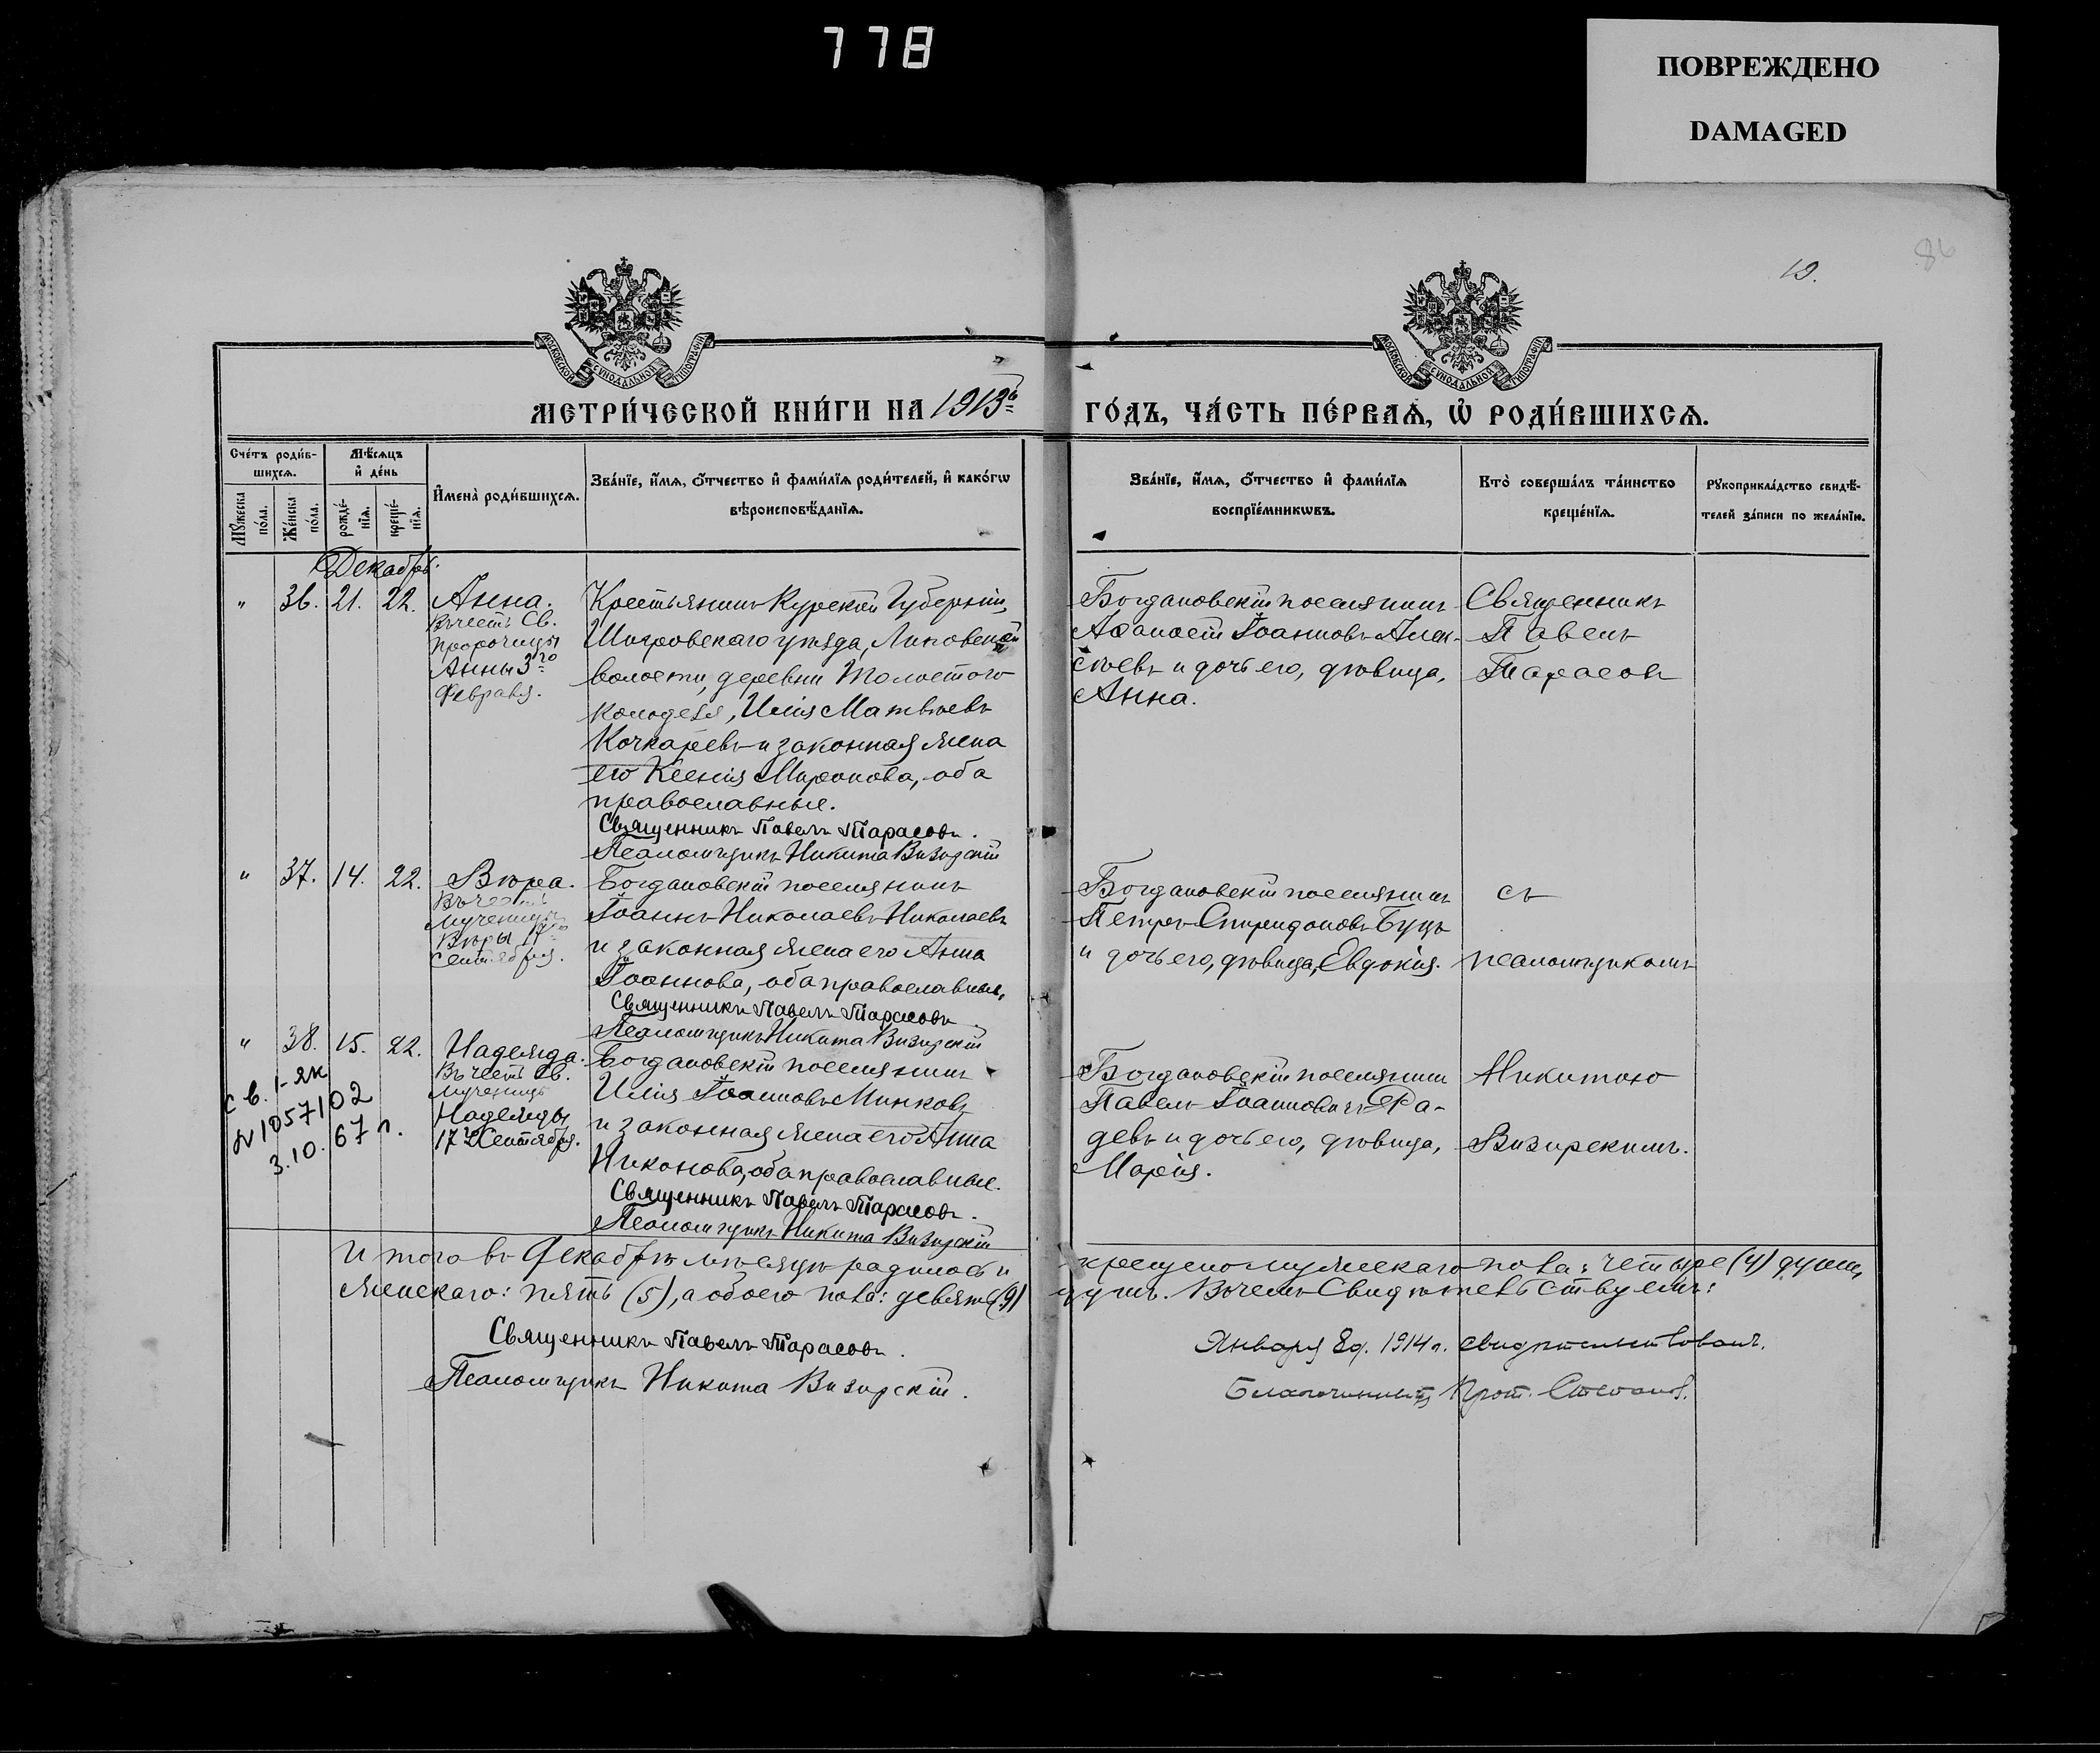 778
ПОВРЕЖДЕНО
DAMAGED
86
19.
МОСКОВСКОЙ СѴНОДАЛЬНОЙ ТИПОГРАФІИ
МОСКОВСКОЙ СѴНОДАЛЬНОЙ ТИПОГРАФІИ
МЕТРИ́ЧЕСКОЙ КНИ́ГИ НА 1913й
ГО́ДЪ, ЧА́СТЬ ПЕ́РВАѦ, Ѡ҆ РОДИ́ВШИХСѦ.
Сче́тъ роди́в-
шихсѧ.
Мꙋ́жеска по́ла.
Же́нска по́ла.
Мѣ́сѧцъ
и҆ де́нь
рожде́-
нїѧ.
креще́-
нїѧ.
И҆мена̀ роди́вшихсѧ.
Зва́нїе, и҆́мѧ, ѻ҆́тчество и҆ фами́лїѧ роди́телей, и҆ како́гѡ
вѣроисповѣ́данїѧ.
Зва́нїе, и҆́мѧ, ѻ҆́тчество и҆ фами́лїѧ
воспрїе́мникѡвъ.
Кто̀ соверша́лъ та́инство
креще́нїѧ.
Рꙋкоприкла́дство свидѣ́-
телей за́писи по жела́нїю.
Декабрь.
" 36. 21. 22.
Анна.
Въ честь Св.
пророчицы
Анны 3го
Февраля.
Крестьянинъ Курской Губерніи,
Щигровскаго уѣзда, Липовской
волости, деревни Толостого
Колодезя, Илія Матвѣевъ
Кочкаревъ и законная жена
его Ксенія Миронова, оба
православные.
Священникъ Павелъ Тарасовъ.
Псаломщикъ Никита Визирскій
Богдановскій поселянинъ
Афанасій Іоанновъ Алек-
сѣевъ и дочь его, дѣвица,
Анна.
Священникъ
Павелъ
Тарасовъ
" 37. 14. 22.
Вѣра.
Въ честь
мученицы
Вѣры 17го
сентября.
Богдановскій поселянинъ
Іоаннъ Николаевъ Николаевъ
и законная жена его Анна
Іоаннова, оба православные,
Священникъ Павелъ Тарасовъ
Псаломщикъ Никита Визирскій
Богдановскій поселянинъ
Петръ Спиридоновъ Буцъ
и дочь его, дѣвица, Евдокія.
съ
псаломщикомъ
" 38. 15. 22.
Надежда.
Въ честь Св.
мученицы
Надежды
17го Сентября.
Св. I-ЯК
N 1057102
3.10.67 г.
Богдановскій поселянинъ
Илія Іоанновъ Минковъ
и законная жена его Анна
Никонова, оба православные.
Священникъ Павелъ Тарасовъ.
Псаломщикъ Никита Визирскій
Богдановскій поселянинъ
Павелъ Іоанновичъ Ра-
девъ и дочь его, дѣвица,
Марія.
Никитою
Визирскимъ.
Итого въ Декабрѣ мѣсяцѣ родилось и
крещено мужескаго пола: четыре (4) души,
женскаго: пять (5), а обоего пола: девять (9)
душъ. Въ чемъ свидѣтельствуемъ:
Священникъ Павелъ Тарасовъ.
Псаломщикъ Никита Визирскій.
Января 8 д. 1914 г. свидѣтельствовалъ.
Благочинный, Прот.